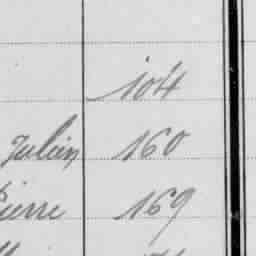 104
Julien 160
Pierre 169